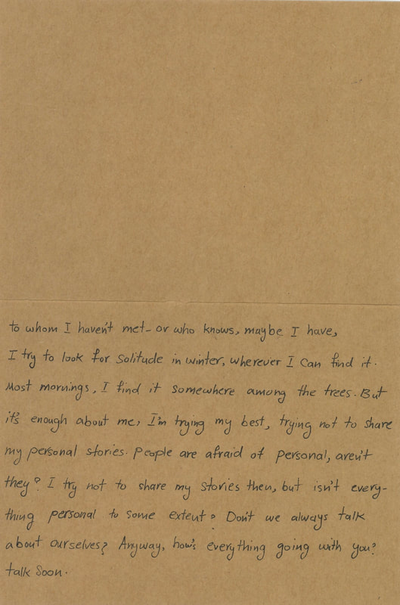 to whom I haven't met - or who knows, maybe I have,
I try to look for solitude in winter, wherever I can find it.
Most mornings, I find it somewhere among the trees. But
it's enough about me, I'm trying my best, trying not to share
my personal stories. People are afraid of personal, aren't
they? I try not to share my stories then, but isn't every-
thing personal to some extent? Don't we always talk
about ourselves? Anyway, how's everything going with you?
talk soon.